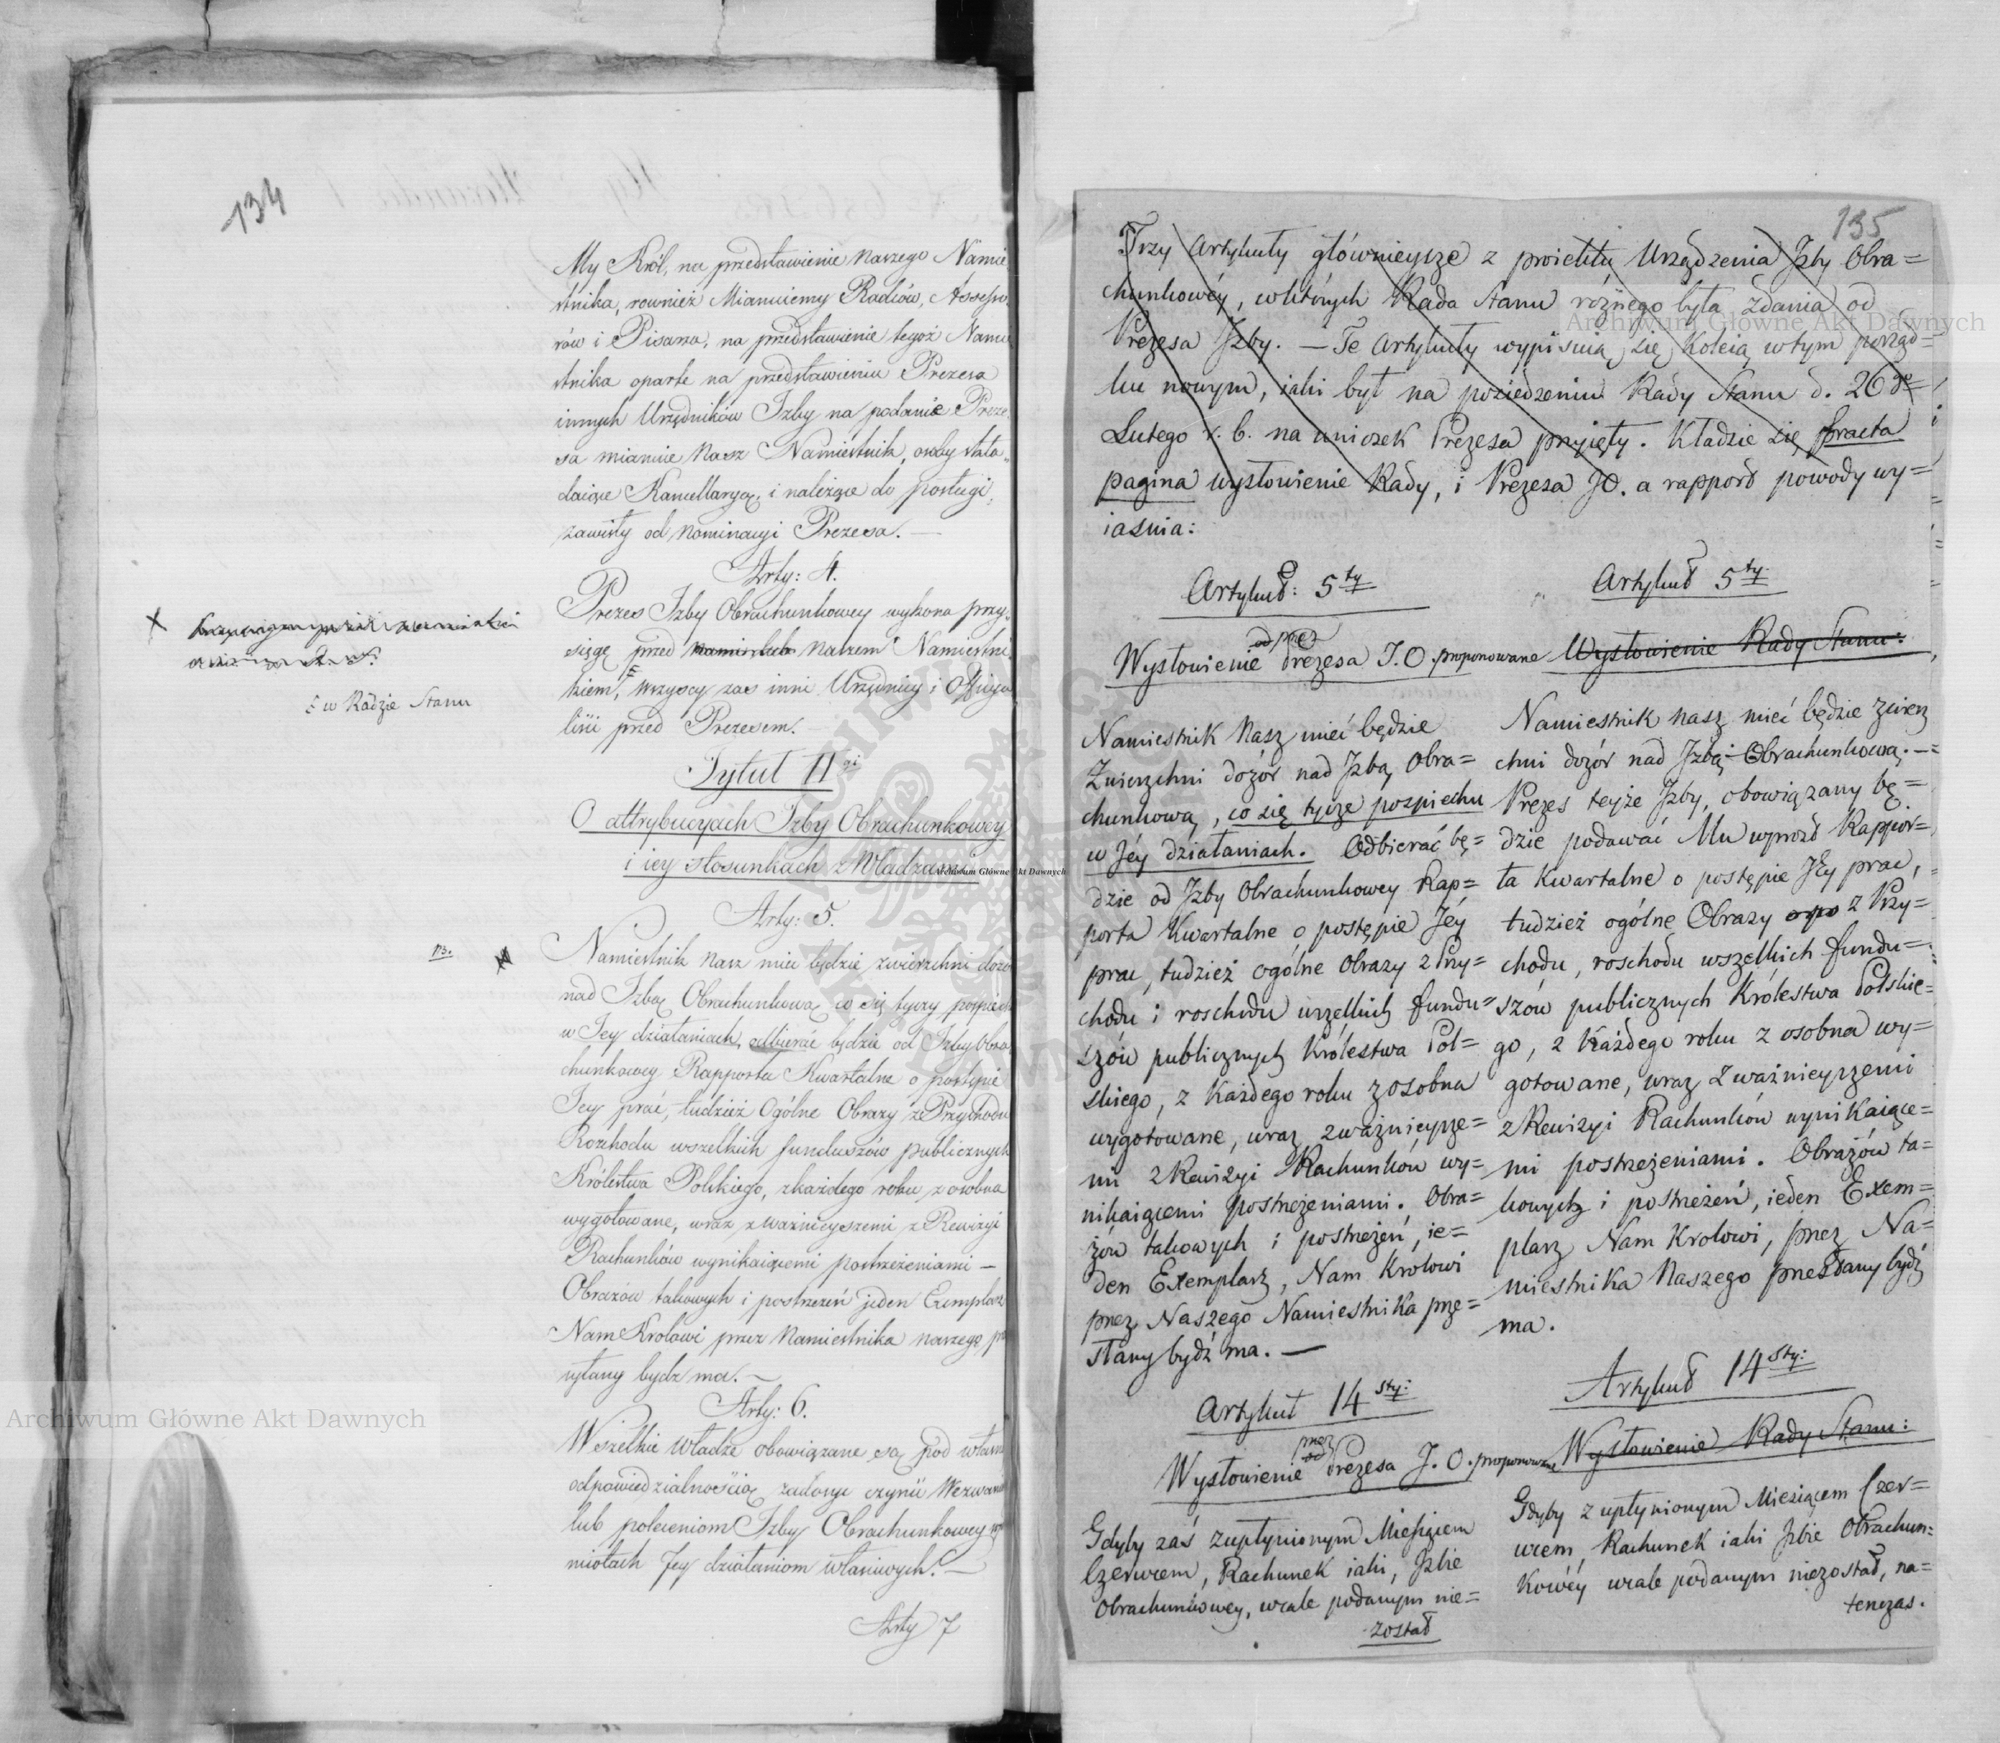 134
My Król, na przedstawienie Naszego Namie
stnika, rownież Mianuiemy Radców, Assesso
rów i Pisarza, na przedstawienie tegoż Namie
stnika oparte na przedstawieniu Prezesa
innych Urzędników Izby na podanie Preze
sa mianuie Nasz Namiestnik, osoby skła„
daiące Kancellaryą, i należące do posługi,
zawisły od nominacyi Prezesa. —
Arty: 4.
Prezes Izby Obrachunkowey wykona przy„
sięgę przed Naszem Namiestni
kiem, wszyscy zas inni Urzędnicy i Officya
liści przed Prezesem.
w Radzie Stanu
Tytuł II gi
O attrybucyach Izby Obrachunkowey
i iey stosunkach z Władzami
Arty: 5.
NB.
Namiestnik nasz mieć będzie zwierzchni dozo
nad Izbą Obrachunkową co się tyczy pospiech
w Jey działaniach, odbierać będzie od Izby Obra
chunkowey Rapporta Kwartalne o postępie
Jey prac, tudzież Ogólne Obrazy z Przychodu
Rozchodu wszelkich funduszów publicznych
Królestwa Polskiego, z każdego roku z osobna
wygotowane, wraz z ważnieyszemi z Rewizyi
Rachunków wynikaiącemi postrzeżeniami —
Obrazów takowych i postrzeżeń jeden Exemplarz
Nam Krolowi przez Namiestnika naszego prze
syłany bydź ma. —
Arty: 6.
Wszelkie Władze obowiązane są pod własn
odpowiedzialnością zadosyć czynić Wezwani
lub poleceniom Izby Obrachunkowey w
miotach Jey działaniom właściwych. —
Arty 7
135
Trzy Artykuły główneysze z proiektu Urządzenia Izby Obra=
chunkowéy, w których Rada Stanu różnego była zdania od
Prezesa Izby. — Te Artykuły wypisuią się koleią w tym porząd=
ku nowym, iaki był na posiedzeniu Rady Stanu d. 26 go
Lutego r. b. na wniosek Prezesa przyięty. Kładzie się fracta
pagina wysłowienie Rady, i Prezesa JO. a rapport powody wy=
iaśnia:
Artykuł: 5 ty
od przez
Wysłowienie Prezesa J. O. proponowane
Namiestnik Nasz mieć będzie
Zwierzchni dozór nad Izbą Obra=
chunkową, co się tycze pospiechu
w Jéy działaniach. Odbierać bę=
dzie od Izby Obrachunkowey Rap=
porta Kwartalne o postępie Jéy
prac, tudzież ogólne Obrazy z Przy=
chodu i roschodu wszelkich fundu=
szów publicznych Królestwa Pol=
skiego, z Każdego roku z osobna
wygotowane, wraz z ważnieysze=
mi z Rewizyi Rachunków wy=
nikaiącemi postrzeżeniami. Obra=
zów takowych i postrzeżeń, ie=
den Exemplarz, Nam Krolowi
przez Naszego Namiestnika prze=
słany bydź ma. —
Artykuł 14 sty:
przez
Wysłowienie Prezesa J. O. proponowane
Gdyby zaś z upłynionym Miesiącem
Czerwcem, Rachunek iaki, Izbie
Obrachunkowey, wcale podanym nie=
został
Artykuł 5 ty:
Wysłowienie Rady Stanu:
Namiestnik nasz mieć będzie zwierz
chni dozór nad Izbą Obrachunkową. —
Prezes teyże Izby, obowiązany bę=
dzie podawać Mu wprost Rappor=
ta Kwartalne o postępie Jéy prac,
tudzież ogólne Obrazy z Przy=
chodu, roschodu wszelkich fundu=
szów publicznych Królestwa Polskie=
go, z Każdego roku z osobna wy=
gotowane, wraz z ważnieyszemi
z Rewizyi Rachunków wynikaiące=
mi postrzeżeniami. Obrazów ta=
kowych i postrzeżeń, ieden Exem=
plarz Nam Krolowi, przez Na=
miestnika Naszego przesłany bydź
ma.
Artykuł 14 sty:
Wysłowienie Rady Stanu:
Gdyby z upłynionym Miesiącem Czer=
wcem, Rachunek iaki Izbie Obrachun=
kowéy wcale podanym niezostał, na=
tenczas.
Archiwum Główne Akt Dawnych
Archiwum Główne Akt Dawnych
Archiwum Główne Akt Dawnych